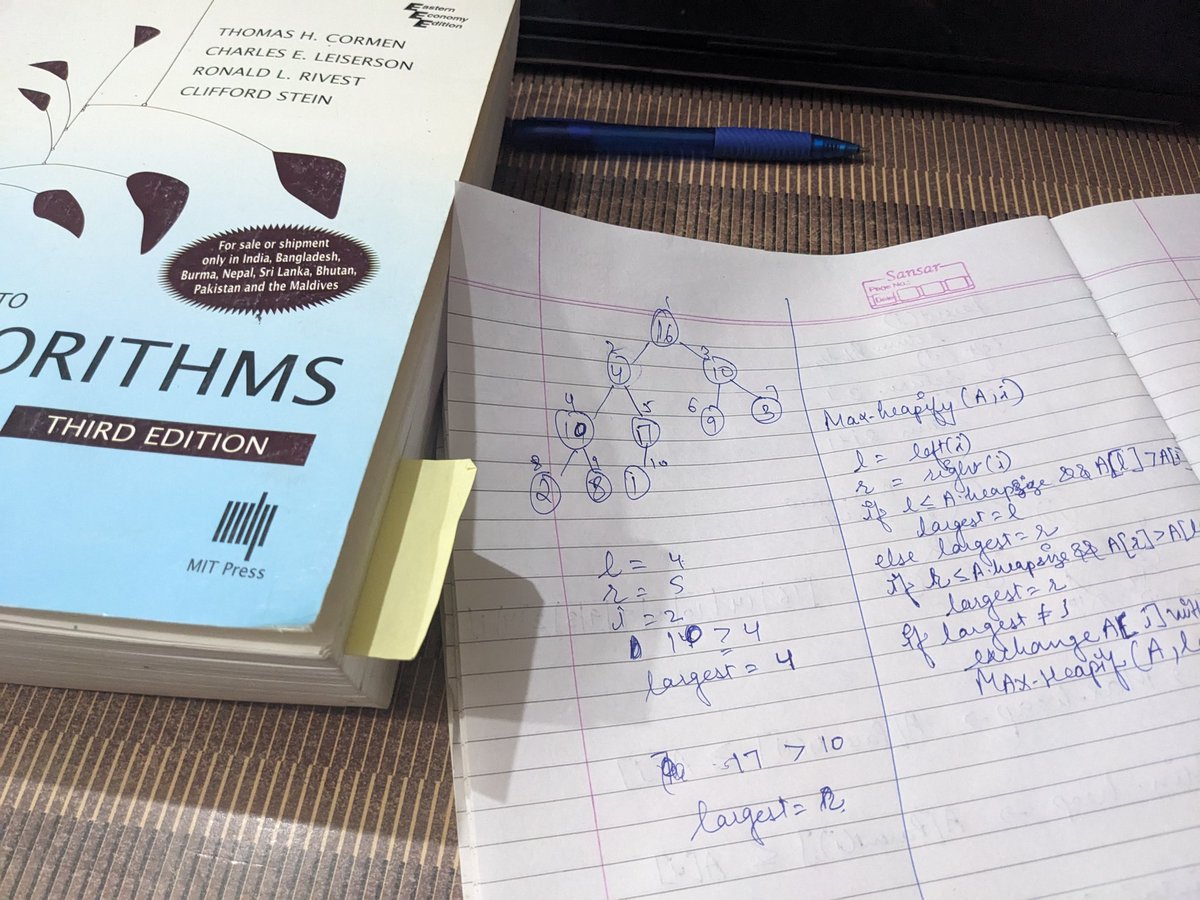 Eastern
Economy
Edition
THOMAS H. CORMEN
CHARLES E. LEISERSON
RONALD L. RIVEST
CLIFFORD STEIN
For sale or shipment
only in India, Bangladesh,
Burma, Nepal, Sri Lanka, Bhutan,
Pakistan and the Maldives
TO
ORITHMS
THIRD EDITION
MIT Press
Sansar
Page No.:
Date
1
16
2 3
4 10
4 5 6 7
10 17 9 3
8 9 10
2 8 1
l = 4
r = 5
i = 2
10 > 4
largest = 4
17 > 10
largest = r
Max-heapify (A, i)
l = left(i)
r = right(i)
If l ≤ A.heapsize && A[l] > A[i
largest = l
else largest = r
if r ≤ A.heapsize && A[r] > A[l
largest = r
If largest ≠ i
exchange A[i] with
MAX-Heapify (A, la